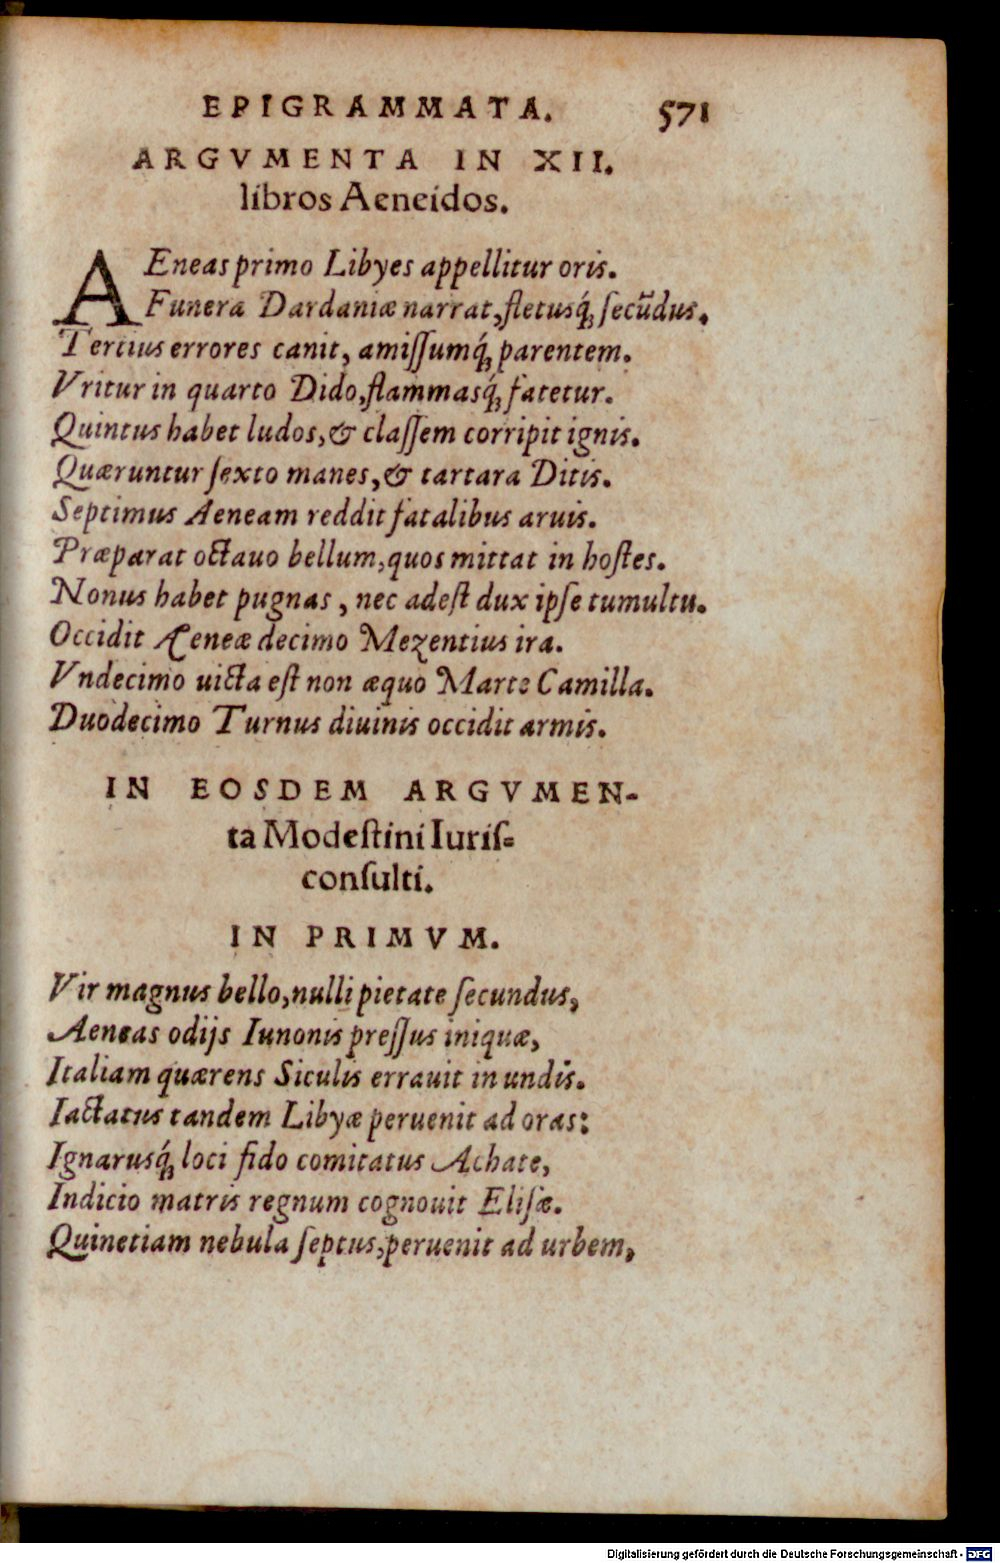 EPIGRAMMATA. 571
ARGVMENTA IN XII.
libros Aeneidos.
AEneas primo Libyes appellitur oris.
Funera Dardaniæ narrat, fletusq́; secũdus.
Tertius errores canit, amissumq́; parentem.
Vritur in quarto Dido, flammasq́; fatetur.
Quintus habet ludos, & classem corripit ignis.
Quæruntur sexto manes, & tartara Ditis.
Septimus Aeneam reddit fatalibus aruis.
Præparat octauo bellum, quos mittat in hostes.
Nonus habet pugnas, nec adest dux ipse tumultu.
Occidit Æneæ decimo Mezentius ira.
Vndecimo uicta est non æquo Marte Camilla.
Duodecimo Turnus diuinis occidit armis.
IN EOSDEM ARGVMEN-
ta Modestini Iuris-
consulti.
IN PRIMVM.
Vir magnus bello, nulli pietate secundus,
Aeneas odijs Iunonis pressus iniquæ,
Italiam quærens Siculis errauit in undis.
Iactatus tandem Libyæ peruenit ad oras:
Ignarusq́; loci fido comitatus Achate,
Indicio matris regnum cognouit Elisæ.
Quinetiam nebula septus, peruenit ad urbem,
Digitalisierung gefördert durch die Deutsche Forschungsgemeinschaft - DFG